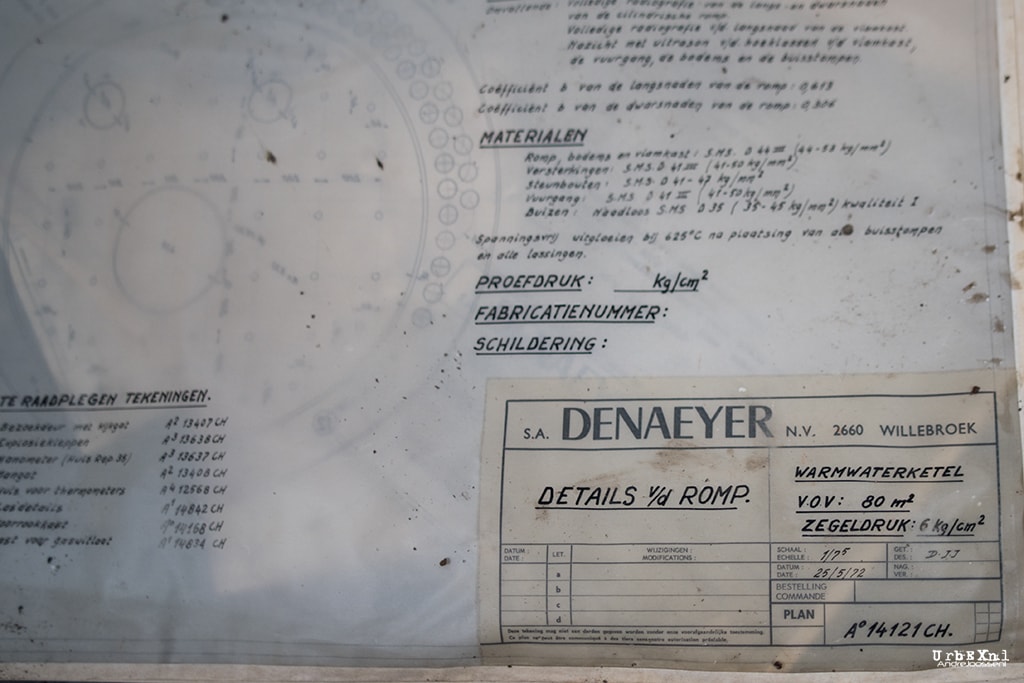 Omvattende: Volledige radiografie van de langs- en dwarsnaden
van de cilindrische romp.
Volledige radiografie v/d langsnaad van de vlamkast.
Nazicht met ultrason v/d hoeklassen v/d vlamkast,
de vuurgang, de bodems en de buisstompen.
Coëfficiënt b van de langsnaden van de romp: 0,613
Coëfficiënt b van de dwarsnaden van de romp: 0,306
MATERIALEN
Romp, bodems en vlamkast: S.M.S. D 44 III (44-53 kg/mm²)
Versterkingen: S.M.S. D 41 III (41-50 kg/mm²)
Steunbouten: S.M.S. D 41-47 kg/mm²
Vuurgang: S.M.S D 41 II (41-50 kg/mm²)
Buizen: Naadloos S.M.S D 35 (35-45 kg/mm²) kwaliteit I
Spanningsvrij uitgloeien bij 625°C na plaatsing van alle buisstompen
en alle lassingen.
PROEFDRUK: kg/cm²
FABRICATIENUMMER:
SCHILDERING:
TE RAADPLEGEN TEKENINGEN.
Bezoekdeur met kijkgat A² 13407 CH
Explosiekleppen A³ 13638 CH
Manometer (Huis Rep. 35) A³ 13637 CH
Mangat A² 13408 CH
Huis voor thermometers A⁴ 12568 CH
Lasdetails A° 14842 CH
Voorrookkast A° 14168 CH
14834 CH
S.A. DENAEYER N.V. 2660 WILLEBROEK
DETAILS v/d ROMP.
WARMWATERKETEL
V.O.V: 80 m²
ZEGELDRUK: 6 kg/cm²
DATUM: DATE: LET. WIJZIGINGEN: MODIFICATIONS:
a
b
c
d
SCHAAL: ECHELLE: 1/7⁵ GET.: DES.: D.JJ
DATUM: DATE: 25/5/72 NAG.: VER.:
BESTELLING
COMMANDE
PLAN A° 14121 CH.
Deze tekening mag niet aan derden gegeven worden zonder onze voorafgaandelijke toestemming.
Ce plan ne peut être communiqué à des tiers sans notre autorisation préalable.
UrbEXnl
AndreJoosse.nl